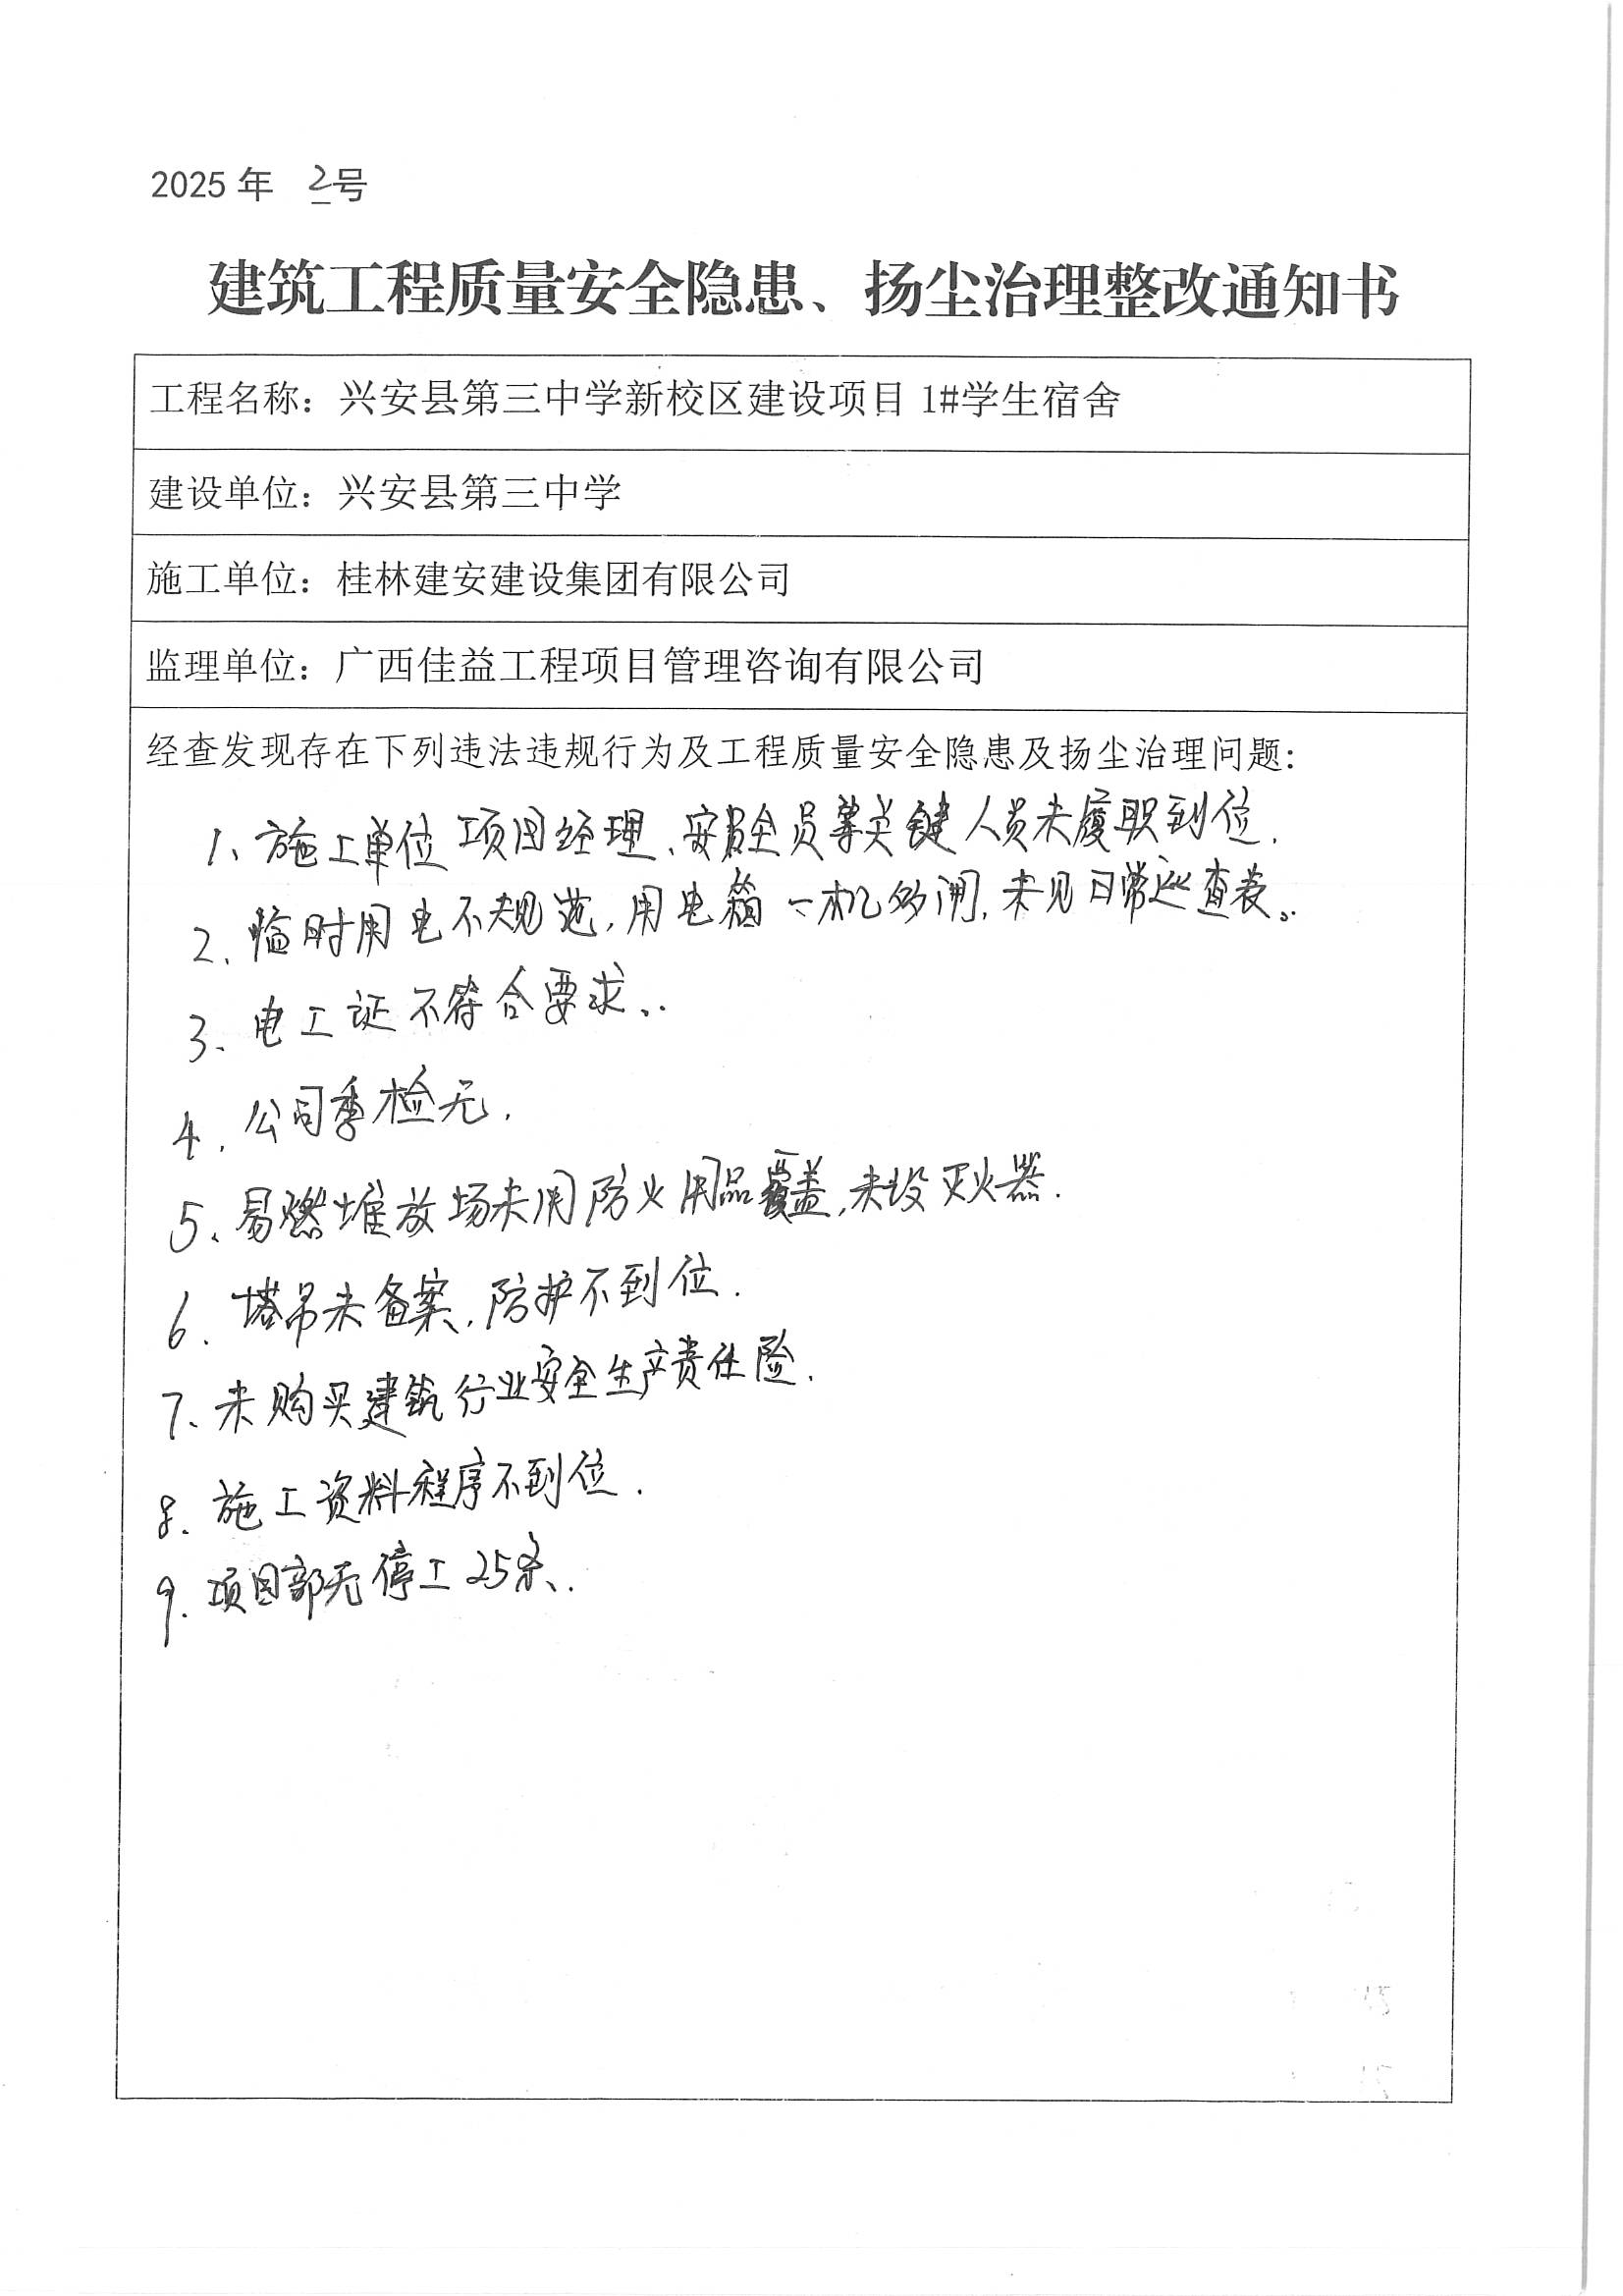 2025年 2号
建筑工程质量安全隐患、扬尘治理整改通知书
工程名称：兴安县第三中学新校区建设项目1#学生宿舍
建设单位：兴安县第三中学
施工单位：桂林建安建设集团有限公司
监理单位：广西佳益工程项目管理咨询有限公司
经查发现存在下列违法违规行为及工程质量安全隐患及扬尘治理问题：
1、施工单位项目经理、安全员等关键人员未履职到位.
2、临时用电不规范，用电箱一机多闸，未见日常巡查表。
3、电工证不符合要求.
4、公司季检无.
5、易燃堆放场未用防火用品覆盖，未设灭火器.
6、塔吊未备案，防护不到位.
7、未购买建筑行业安全生产责任险.
8、施工资料程序不到位.
9、项目部无停工25条.